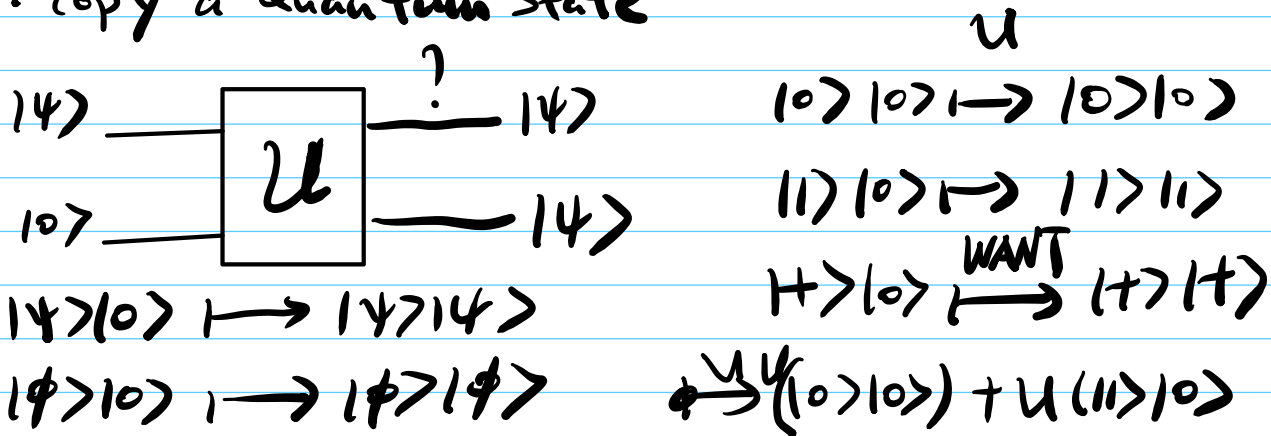 · copy a quantum state
?
|ψ⟩ U |ψ⟩
|0⟩ |ψ⟩
|ψ⟩|0⟩ ⟼ |ψ⟩|ψ⟩
|ϕ⟩|0⟩ ⟼ |ϕ⟩|ϕ⟩
U
|0⟩|0⟩ ⟼ |0⟩|0⟩
|1⟩|0⟩ ⟼ |1⟩|1⟩
WANT
|+⟩|0⟩ ⟼ |+⟩|+⟩
U
⟼ U(|0⟩|0⟩) + U(|1⟩|0⟩